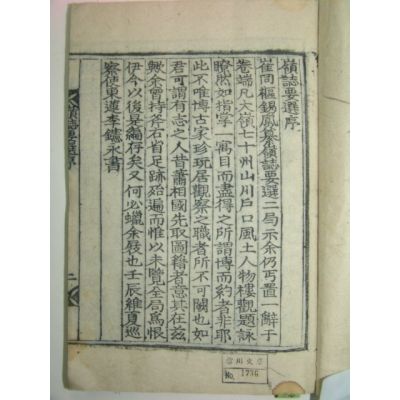 嶺誌要選序
崔同樞錫鳳纂嶺誌要選二局示余仍丐置一辭于
卷端凡大嶺七十州山川戶口風土人物樓觀題詠
瞭然如指掌一寓目而盡得之所謂博而約者非耶
此不唯博古家珍玩居觀察之職者所不可闕也如
君可謂有志之人昔蕭相國先取圖籍者意其在玆
歟余曾持斧右省足跡殆遍而惟以未覽全局爲恨
伊今以後是編存矣又何必蠟余屐也壬辰維夏巡
察使東遵李𨯶永書
嶺誌要選序
二
No. 1736